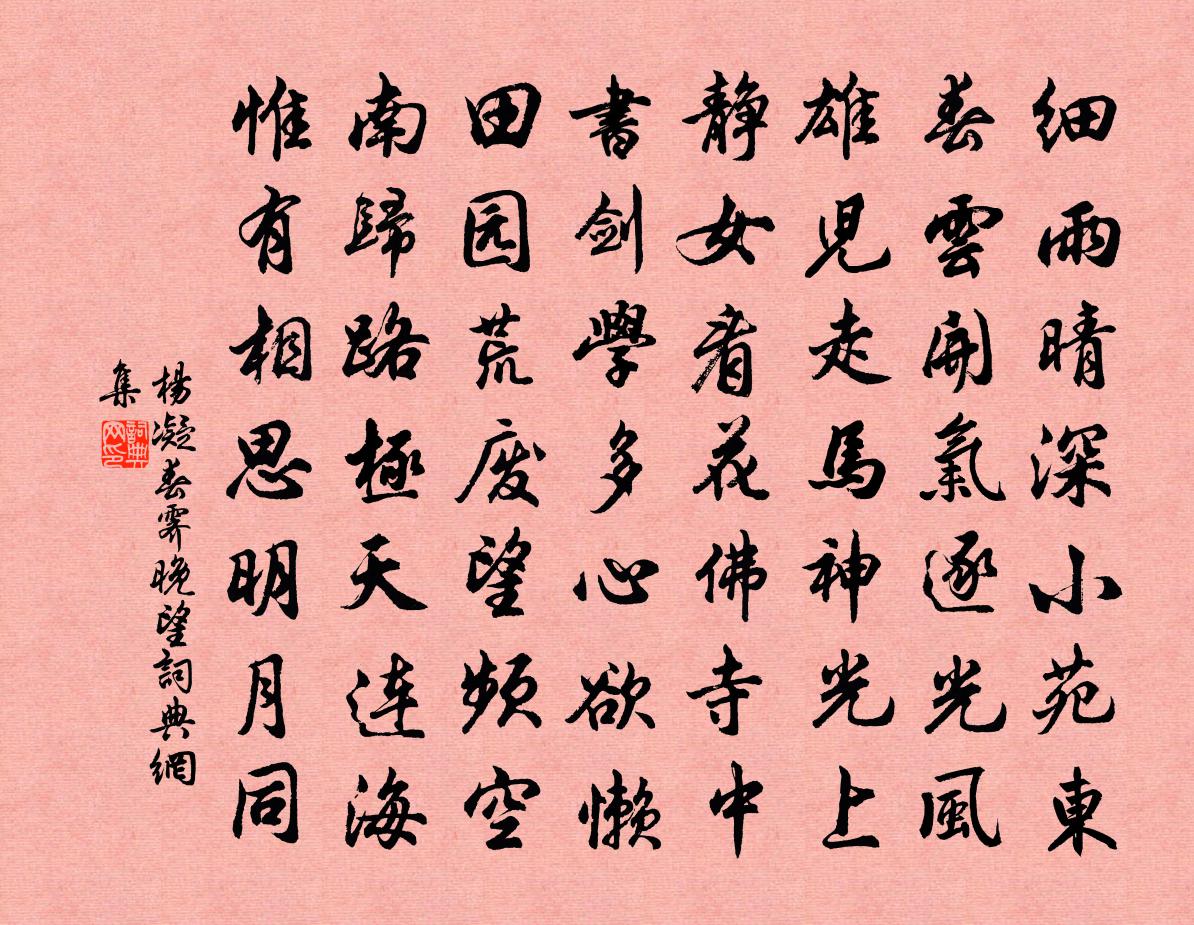 细雨晴深小苑東
春雲開氣逐光風
雄兒走馬神光上
静女看花佛寺中
書剑學多心欲懒
田园荒废望频空
南歸路極天连海
惟有相思明月同
楊凝春霽晚望詞典網
集
詞典
网印